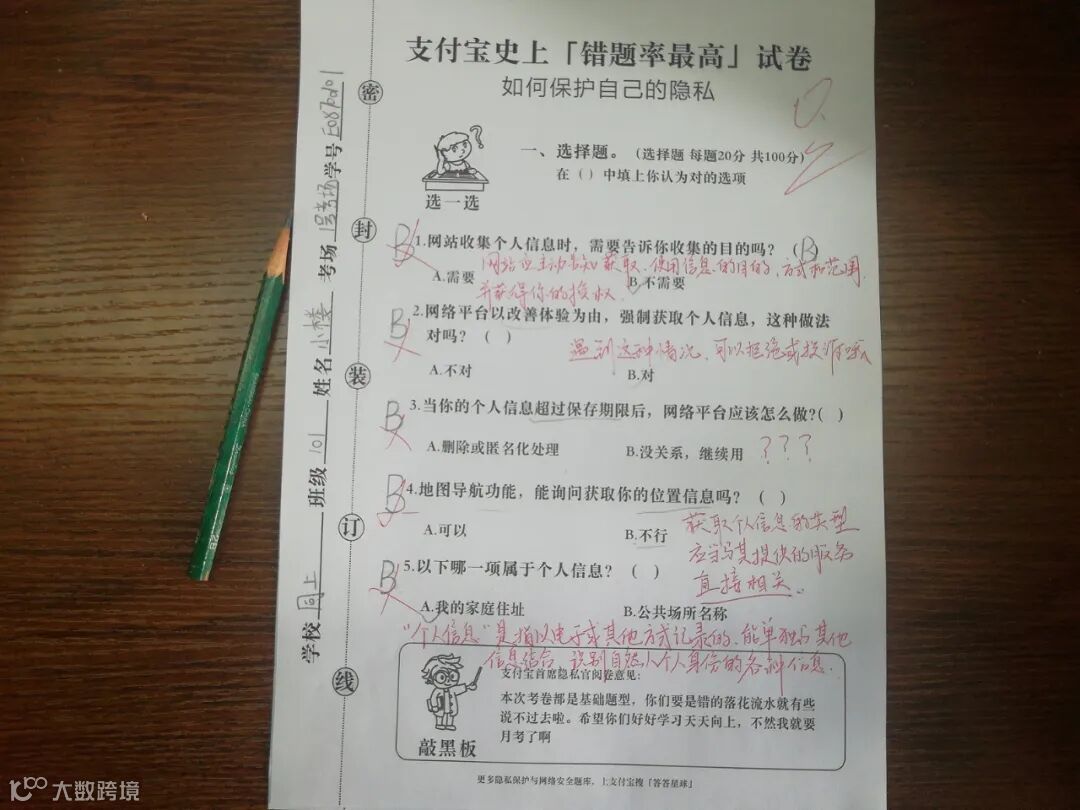 支付宝史上「错题率最高」试卷
如何保护自己的隐私
一、选择题。（选择题 每题20分 共100分）
在（ ）中填上你认为对的选项
选一选
B 1.网站收集个人信息时，需要告诉你收集的目的吗？（B）
网站应主动告知获取、使用信息的目的、方式和范围，
A.需要 B.不需要
并获得你的授权.
B 2.网络平台以改善体验为由，强制获取个人信息，这种做法
对吗？（ ）
遇到这种情况，可以拒绝或投诉哦
A.不对 B.对
B 3.当你的个人信息超过保存期限后，网络平台应该怎么做?（ ）
A.删除或匿名化处理 B.没关系，继续用 ？？？
B 4.地图导航功能，能询问获取你的位置信息吗？（ ）
A.可以 B.不行
获取个人信息的类型
应当与其提供的服务
直接相关。
B 5.以下哪一项属于个人信息？（ ）
A.我的家庭住址 B.公共场所名称
“个人信息”是指以电子或其他方式记录的、能单独或与其他
信息结合 识别自然人个人身份的各种信息.
支付宝首席隐私官阅卷意见：
本次考卷都是基础题型，你们要是错的落花流水就有些
说不过去啦。希望你们好好学习天天向上，不然我就要
月考了啊
敲黑板
更多隐私保护与网络安全题库，上支付宝搜「答答星球」
学校 同上 班级 101 姓名 小楼 考场 学号
密
封
装
订
线
大数跨境